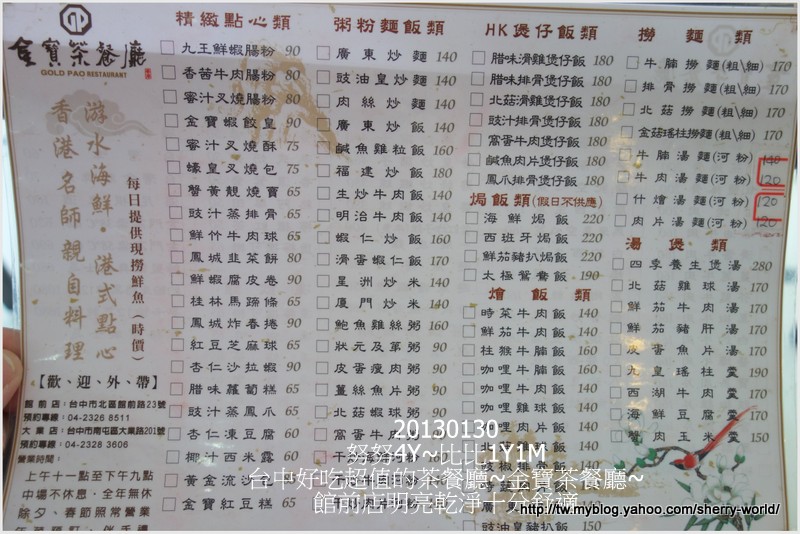 金寶茶餐廳
GOLD PAO RESTAURANT
游水海鮮・港式點心
香港名師親自料理
每日提供現撈鮮魚(時價)
【歡、迎、外、帶】
館前店:台中市北區館前路23號
預約專線:04-2326 8511
大業店:台中市南屯區大業路201號
預約專線:04-2328 3606
營業時間:
上午十一點至下午九點
中場不休息・全年無休
除夕、春節照常營業
精緻點心類
九王鮮蝦腸粉 90
香茜牛肉腸粉 80
蜜汁叉燒腸粉 80
金寶蝦餃皇 90
蜜汁叉燒酥 75
蠔皇叉燒包 75
蟹黃靚燒賣 65
豉汁蒸排骨 65
鮮竹牛肉球 65
鳳城韭菜餅 80
鮮蝦腐皮卷 90
桂林馬蹄條 65
鳳城炸春捲 90
紅豆芝麻球 65
杏仁沙拉蝦 90
腊味蘿蔔糕 65
豉汁蒸鳳爪 65
杏仁凍豆腐 60
椰汁西米露
黃金流沙
金寶紅豆糕 65
粥粉麵飯類
廣東炒麵 140
豉油皇炒麵 140
肉絲炒麵 140
廣東炒飯 140
鹹魚雞粒飯 160
福建炒飯 160
生炒牛肉飯 140
明治牛肉飯 140
蝦仁炒飯 160
滑蛋蝦仁飯 170
星洲炒米 140
廈門炒米 140
鮑魚雞絲粥 160
狀元及第粥 90
皮蛋瘦肉粥 90
薑絲魚片粥 90
北菇蝦球粥
HK煲仔飯類
腊味滑雞煲仔飯 180
腊味排骨煲仔飯 180
北菇滑雞煲仔飯 180
豉汁排骨煲仔飯 180
窩蛋牛肉煲仔飯 180
鹹魚肉片煲仔飯 180
鳳爪排骨煲仔飯 180
焗飯類(假日不供應)
海鮮焗飯 220
西班牙焗飯 220
鮮茄豬扒焗飯 220
太極鴛鴦飯 190
燴飯類
時菜牛肉飯 140
鮮茄牛肉飯 140
柱猴牛腩飯 160
咖哩牛腩飯 160
咖哩牛肉飯 140
咖哩雞球飯 140
咖哩
窩蛋
豉椒排骨飯
豉油皇豬扒 150
撈麵類
牛腩撈麵(粗\細) 170
排骨撈麵(粗\細) 170
北菇撈麵(粗\細) 170
金菇瑤柱撈麵(粗\細) 170
牛腩湯麵(河粉) 140
牛肉湯麵(河粉) 120
什燴湯麵(河粉) 120
肉片湯麵(河粉) 120
湯煲類
四季養生煲湯 280
北菇雞球湯 170
鮮茄牛肉湯 170
鮮茄豬肝湯 170
皮蛋魚片湯 170
九皇瑤柱羹 170
西湖牛肉羹 170
海鮮豆腐羹 170
蟹肉玉米羹 150
20130130
努努4Y~比比1Y1M
台中好吃超值的茶餐廳~金寶茶餐廳~
館前店明亮乾淨十分舒適
http://tw.myblog.yahoo.com/sherry-world/